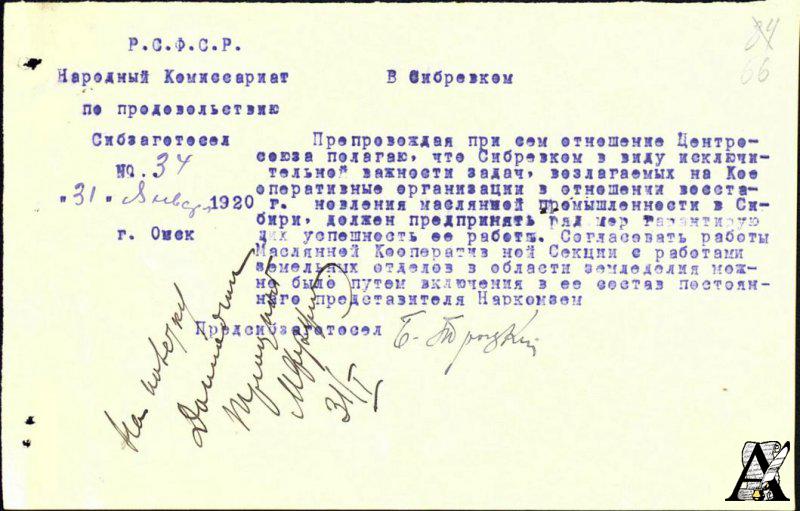 84
66
Р.С.Ф.С.Р.
Народный Комиссариат
по продовольствию
Сибзаготосел
№. 34
"31" Января 1920 г.
г. Омск
В Сибревком
Препровождая при сем отношение Центро-
союза полагаю, что Сибревком в виду исключи-
тельной важности задач, возлагаемых на Кое
оперативные организации в отношении восста-
новления маслянной промышленности в Си-
бири, должен предпринять ряд мер гарантирую
щих успешность ее работы. Согласовать работы
Маслянной Кооператив ной Секции с работами
земельных отделов в области земледелия мож-
но было путем включения в ее состав постоян-
нного представителя Наркомзем
Предсибзаготосел Б. Троцкий
На повестку
Докладчик
Троцкий
31/I
А